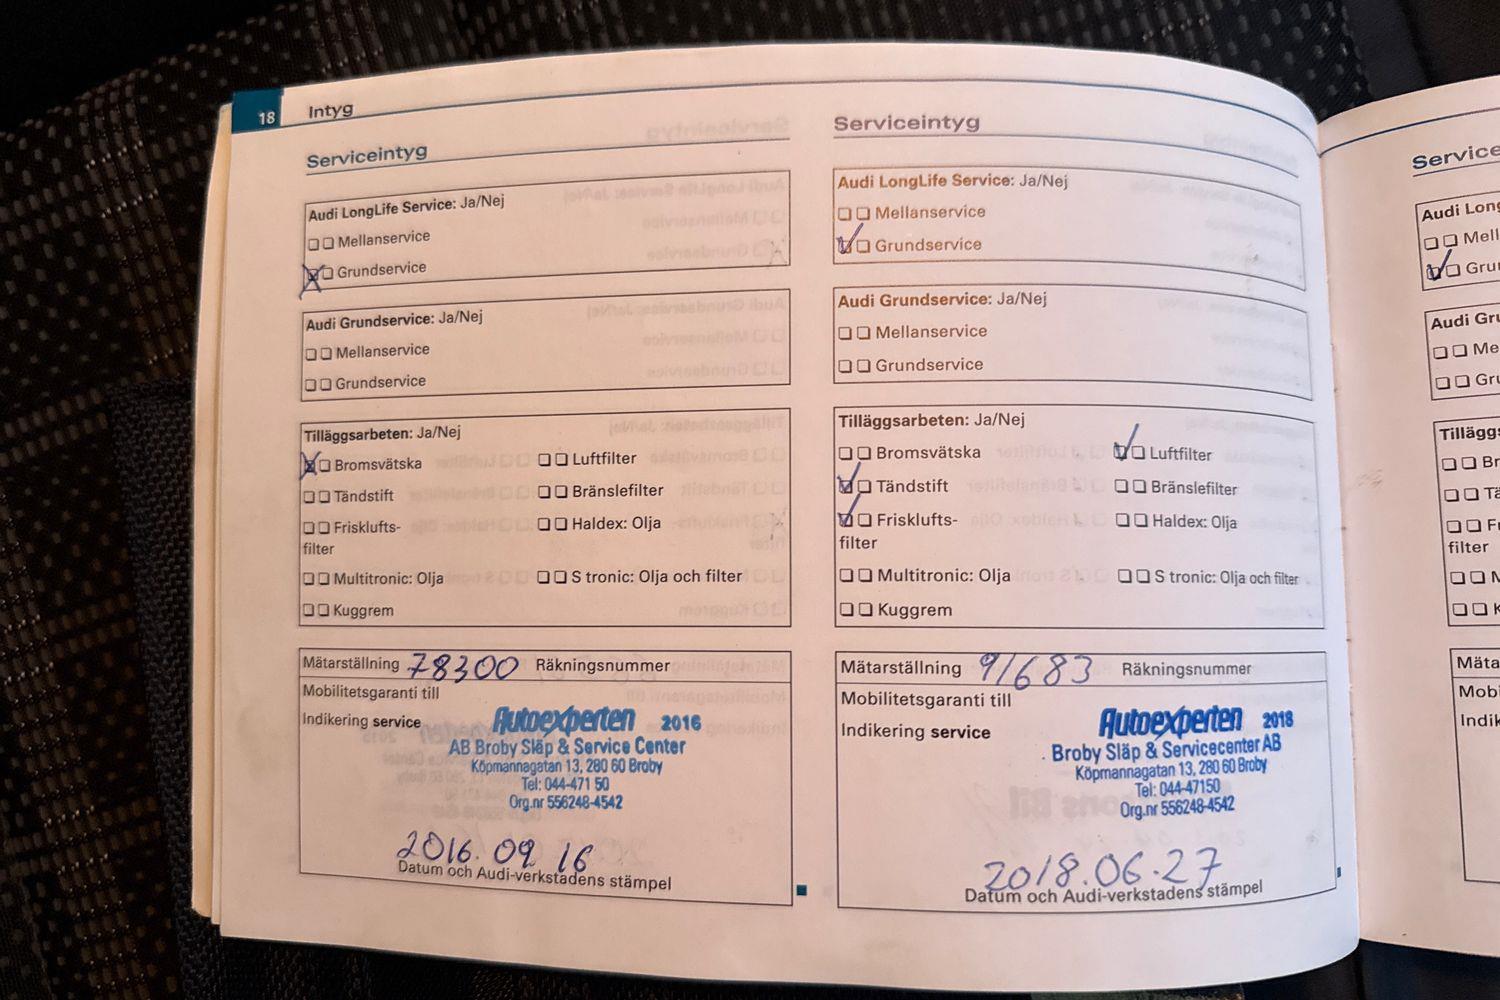 18 Intyg
Serviceintyg
Audi LongLife Service: Ja/Nej
Mellanservice
Grundservice
Audi Grundservice: Ja/Nej
Mellanservice
Grundservice
Tilläggsarbeten: Ja/Nej
Bromsvätska Luftfilter
Tändstift Bränslefilter
Frisklufts- Haldex: Olja
filter
Multitronic: Olja S tronic: Olja och filter
Kuggrem
Mätarställning 78300 Räkningsnummer
Mobilitetsgaranti till
Indikering service
Autoexperten 2016
AB Broby Släp & Service Center
Köpmannagatan 13, 280 60 Broby
Tel: 044-471 50
Org.nr 556248-4542
2016.09 16
Datum och Audi-verkstadens stämpel
Serviceintyg
Audi LongLife Service: Ja/Nej
Mellanservice
Grundservice
Audi Grundservice: Ja/Nej
Mellanservice
Grundservice
Tilläggsarbeten: Ja/Nej
Bromsvätska Luftfilter
Tändstift Bränslefilter
Frisklufts- Haldex: Olja
filter
Multitronic: Olja S tronic: Olja och filter
Kuggrem
Mätarställning 91683 Räkningsnummer
Mobilitetsgaranti till
Indikering service
Autoexperten 2018
Broby Släp & Servicecenter AB
Köpmannagatan 13, 280 60 Broby
Tel: 044-47150
Org.nr 556248-4542
2018.06.27
Datum och Audi-verkstadens stämpel
Service
Audi Long
Mell
Grun
Audi Gru
Me
Gru
Tillägg
Br
Tä
Fr
filter
M
K
Mäta
Mobi
Indik